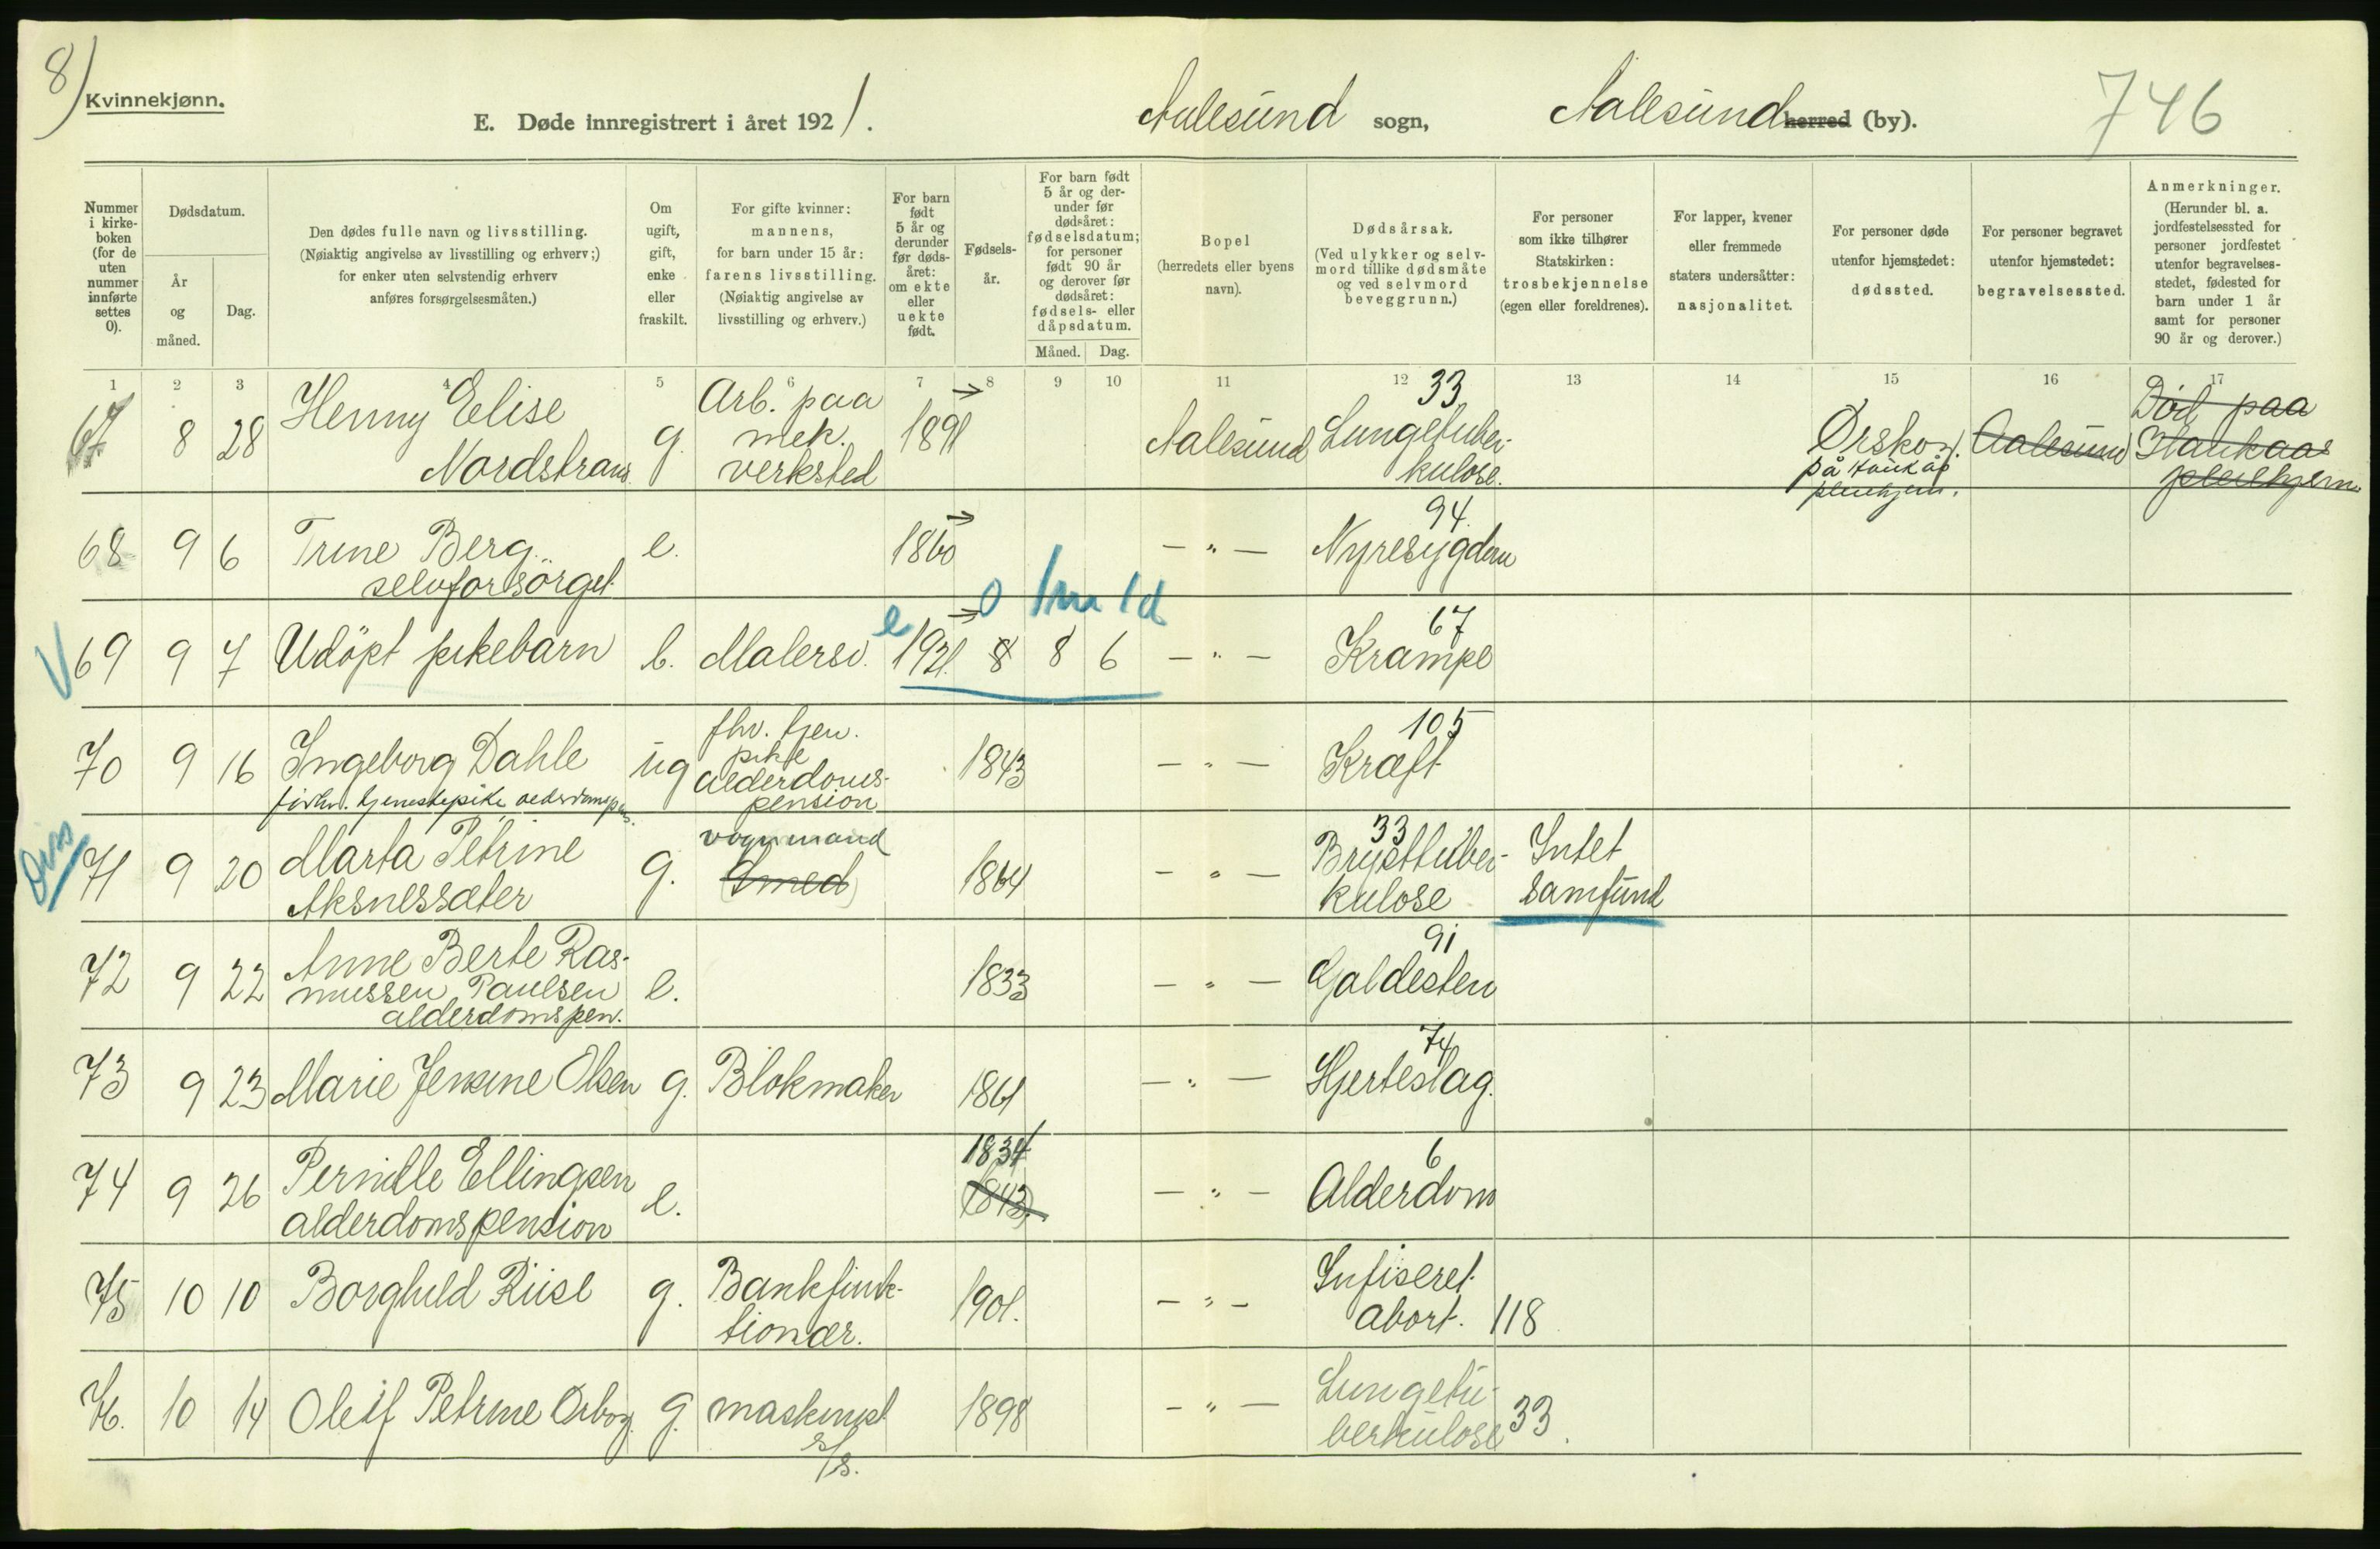 8)
Kvinnekjønn.
E. Døde innregistrert i året 1921.
Aalesund sogn,
Aalesund herred (by).
746
Nummer i kirkeboken (for de uten nummer innførte settes 0).
Dødsdatum.
År og måned.
Dag.
Den dødes fulle navn og livsstilling.
(Nøiaktig angivelse av livsstilling og erhverv;)
for enker uten selvstendig erhverv
anføres forsørgelsesmåten.)
Om ugift, gift, enke eller fraskilt.
For gifte kvinner:
mannens,
for barn under 15 år:
farens livsstilling.
(Nøiaktig angivelse av
livsstilling og erhverv.)
For barn født 5 år og derunder før dødsåret: om ekte eller uekte født.
Fødselsår.
For barn født 5 år og derunder før dødsåret: fødselsdatum; for personer født 90 år og derover før dødsåret: fødsels- eller dåpsdatum.
Måned.
Dag.
Bopel
(herredets eller byens
navn).
Dødsårsak.
(Ved ulykker og selv-
mord tillike dødsmåte
og ved selvmord
beveggrunn.)
For personer
som ikke tilhører
Statskirken:
trosbekjennelse
(egen eller foreldrenes).
For lapper, kvener
eller fremmede
staters undersåtter:
nasjonalitet.
For personer døde
utenfor hjemstedet:
dødssted.
For personer begravet
utenfor hjemstedet:
begravelsessted.
Anmerkninger.
(Herunder bl. a.
jordfestelsessted for
personer jordfestet
utenfor begravelses-
stedet, fødested for
barn under 1 år
samt for personer
90 år og derover.)
1 2 3 4 5 6 7 8 9 10 11 12 13 14 15 16 17
67 8 28 Henny Elise
Nordstrand g. Arb. paa
mek.
verksted 1891 Aalesund 33
Lungetuber-
kulose. Ørskog.
på Haukås
pleiehjem. Aalesund Død paa
Haukaas
pleiehjem.
68 9 6 Trine Berg.
selvforsörget e. 1860 — " — 94.
Nyresygdom
69 9 7 Udöpt pikebarn b. Malersv. e 1921. 8 8 6 0 1m 1d — " — 67
Krampe
70 9 16 Ingeborg Dahle
forhv. tjenestepike alderdomspens. ug fhv. tjen.
pike
alderdoms-
pension 1843 — " — 105
Kræft
Diss
71 9 20 Marta Petrine
Aksnessæter g. vognmand
(Smed) 1864 — " — 33
Brysttuber-
kulose Intet
samfund
72 9 22 Anne Berte Ras-
mussen Paulsen
alderdomspen. e. 1833 — " — 91
Galdesten
73 9 23 Marie Jensine Olsen g. Blokmaker 1861 — " — 74
Hjerteslag.
74 9 26 Pernille Ellingsen
alderdomspension e. 1834
(1843) — " — 6
Alderdom
75 10 10 Borghild Riise g. Bankfunk-
tionær. 1901. — " — Infiseret
abort. 118
76. 10 14 Oleif Petrine Orbog. g. maskinist
s/s. 1898 — " — Lungetu-
berkulose 33.